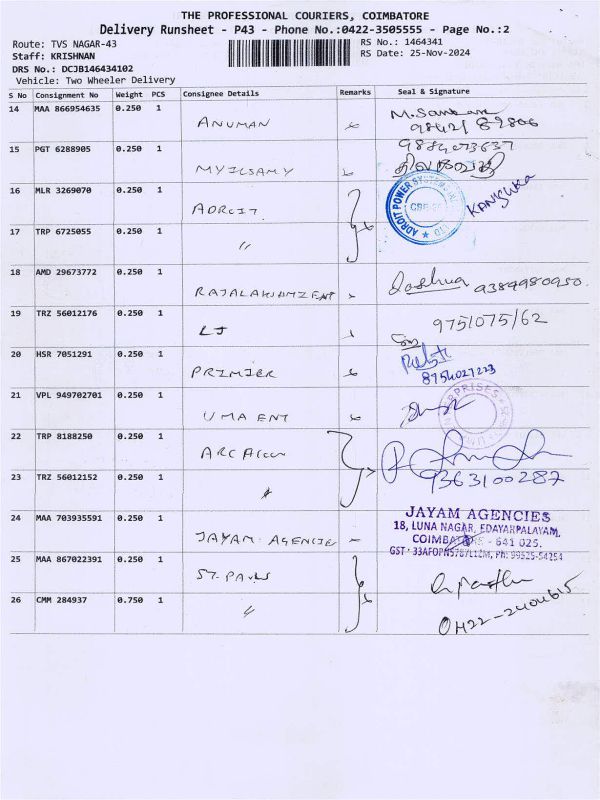 THE PROFESSIONAL COURIERS, COIMBATORE
Delivery Runsheet - P43 - Phone No.:0422-3505555 - Page No.:2
Route: TVS NAGAR-43
RS No.: 1464341
Staff: KRISHNAN
RS Date: 25-Nov-2024
DRS No.: DCJB146434102
Vehicle: Two Wheeler Delivery
S No Consignment No Weight PCS Consignee Details Remarks Seal & Signature
14 MAA 866954635 0.250 1 ANUMAN
15 PGT 6288905 0.250 1 MYILSAMY
16 MLR 3269070 0.250 1 ADROIT
ADROIT POWER SYSTEMS
KANISHKA
17 TRP 6725055 0.250 1 "
18 AMD 29673772 0.250 1 9384980950
19 TRZ 56012176 0.250 1 LJ 9751075162
20 HSR 7051291 0.250 1 PREMIER
8754027223
21 VPL 949702701 0.250 1 UMA ENT
22 TRP 8188250 0.250 1
23 TRZ 56012152 0.250 1 " 9363100287
24 MAA 703935591 0.250 1 JAYAM AGENCIE
JAYAM AGENCIES
18, LUNA NAGAR, EDAYARPALAYAM,
COIMBATORE - 641 025.
25 MAA 867022391 0.250 1 ST. PAULS
26 CMM 284937 0.750 1 "
0422-2404615